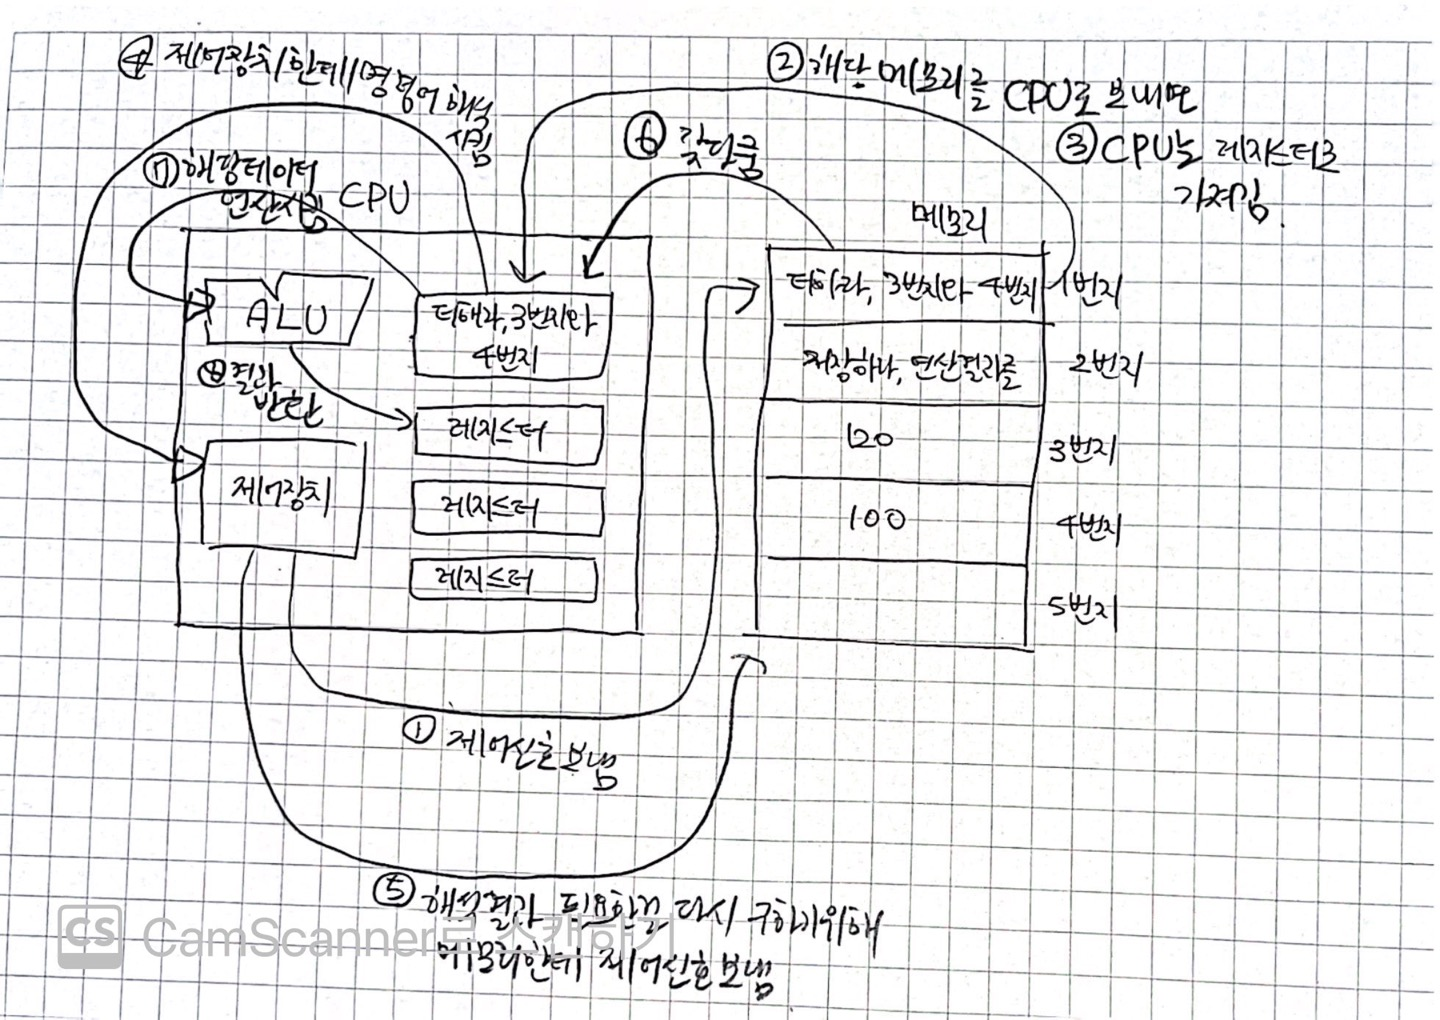 ④ 제어장치한테 명령어 해석
시킴
② 해당 메모리를 CPU로 보내면
③ CPU는 레지스터로
가져옴.
⑥ 갖다줌
⑦ 해당데이터
연산시킴
CPU
메모리
ALU
더해라, 3번지와
4번지
⑧ 결과
반환
레지스터
제어장치
레지스터
레지스터
더하라, 3번지와 4번지 1번지
저장하라, 연산결과를 2번지
120 3번지
100 4번지
5번지
① 제어신호 보냄
⑤ 해석결과 필요한걸 다시 구하기위해
메모리한테 제어신호 보냄
CS CamScanner로 스캔하기